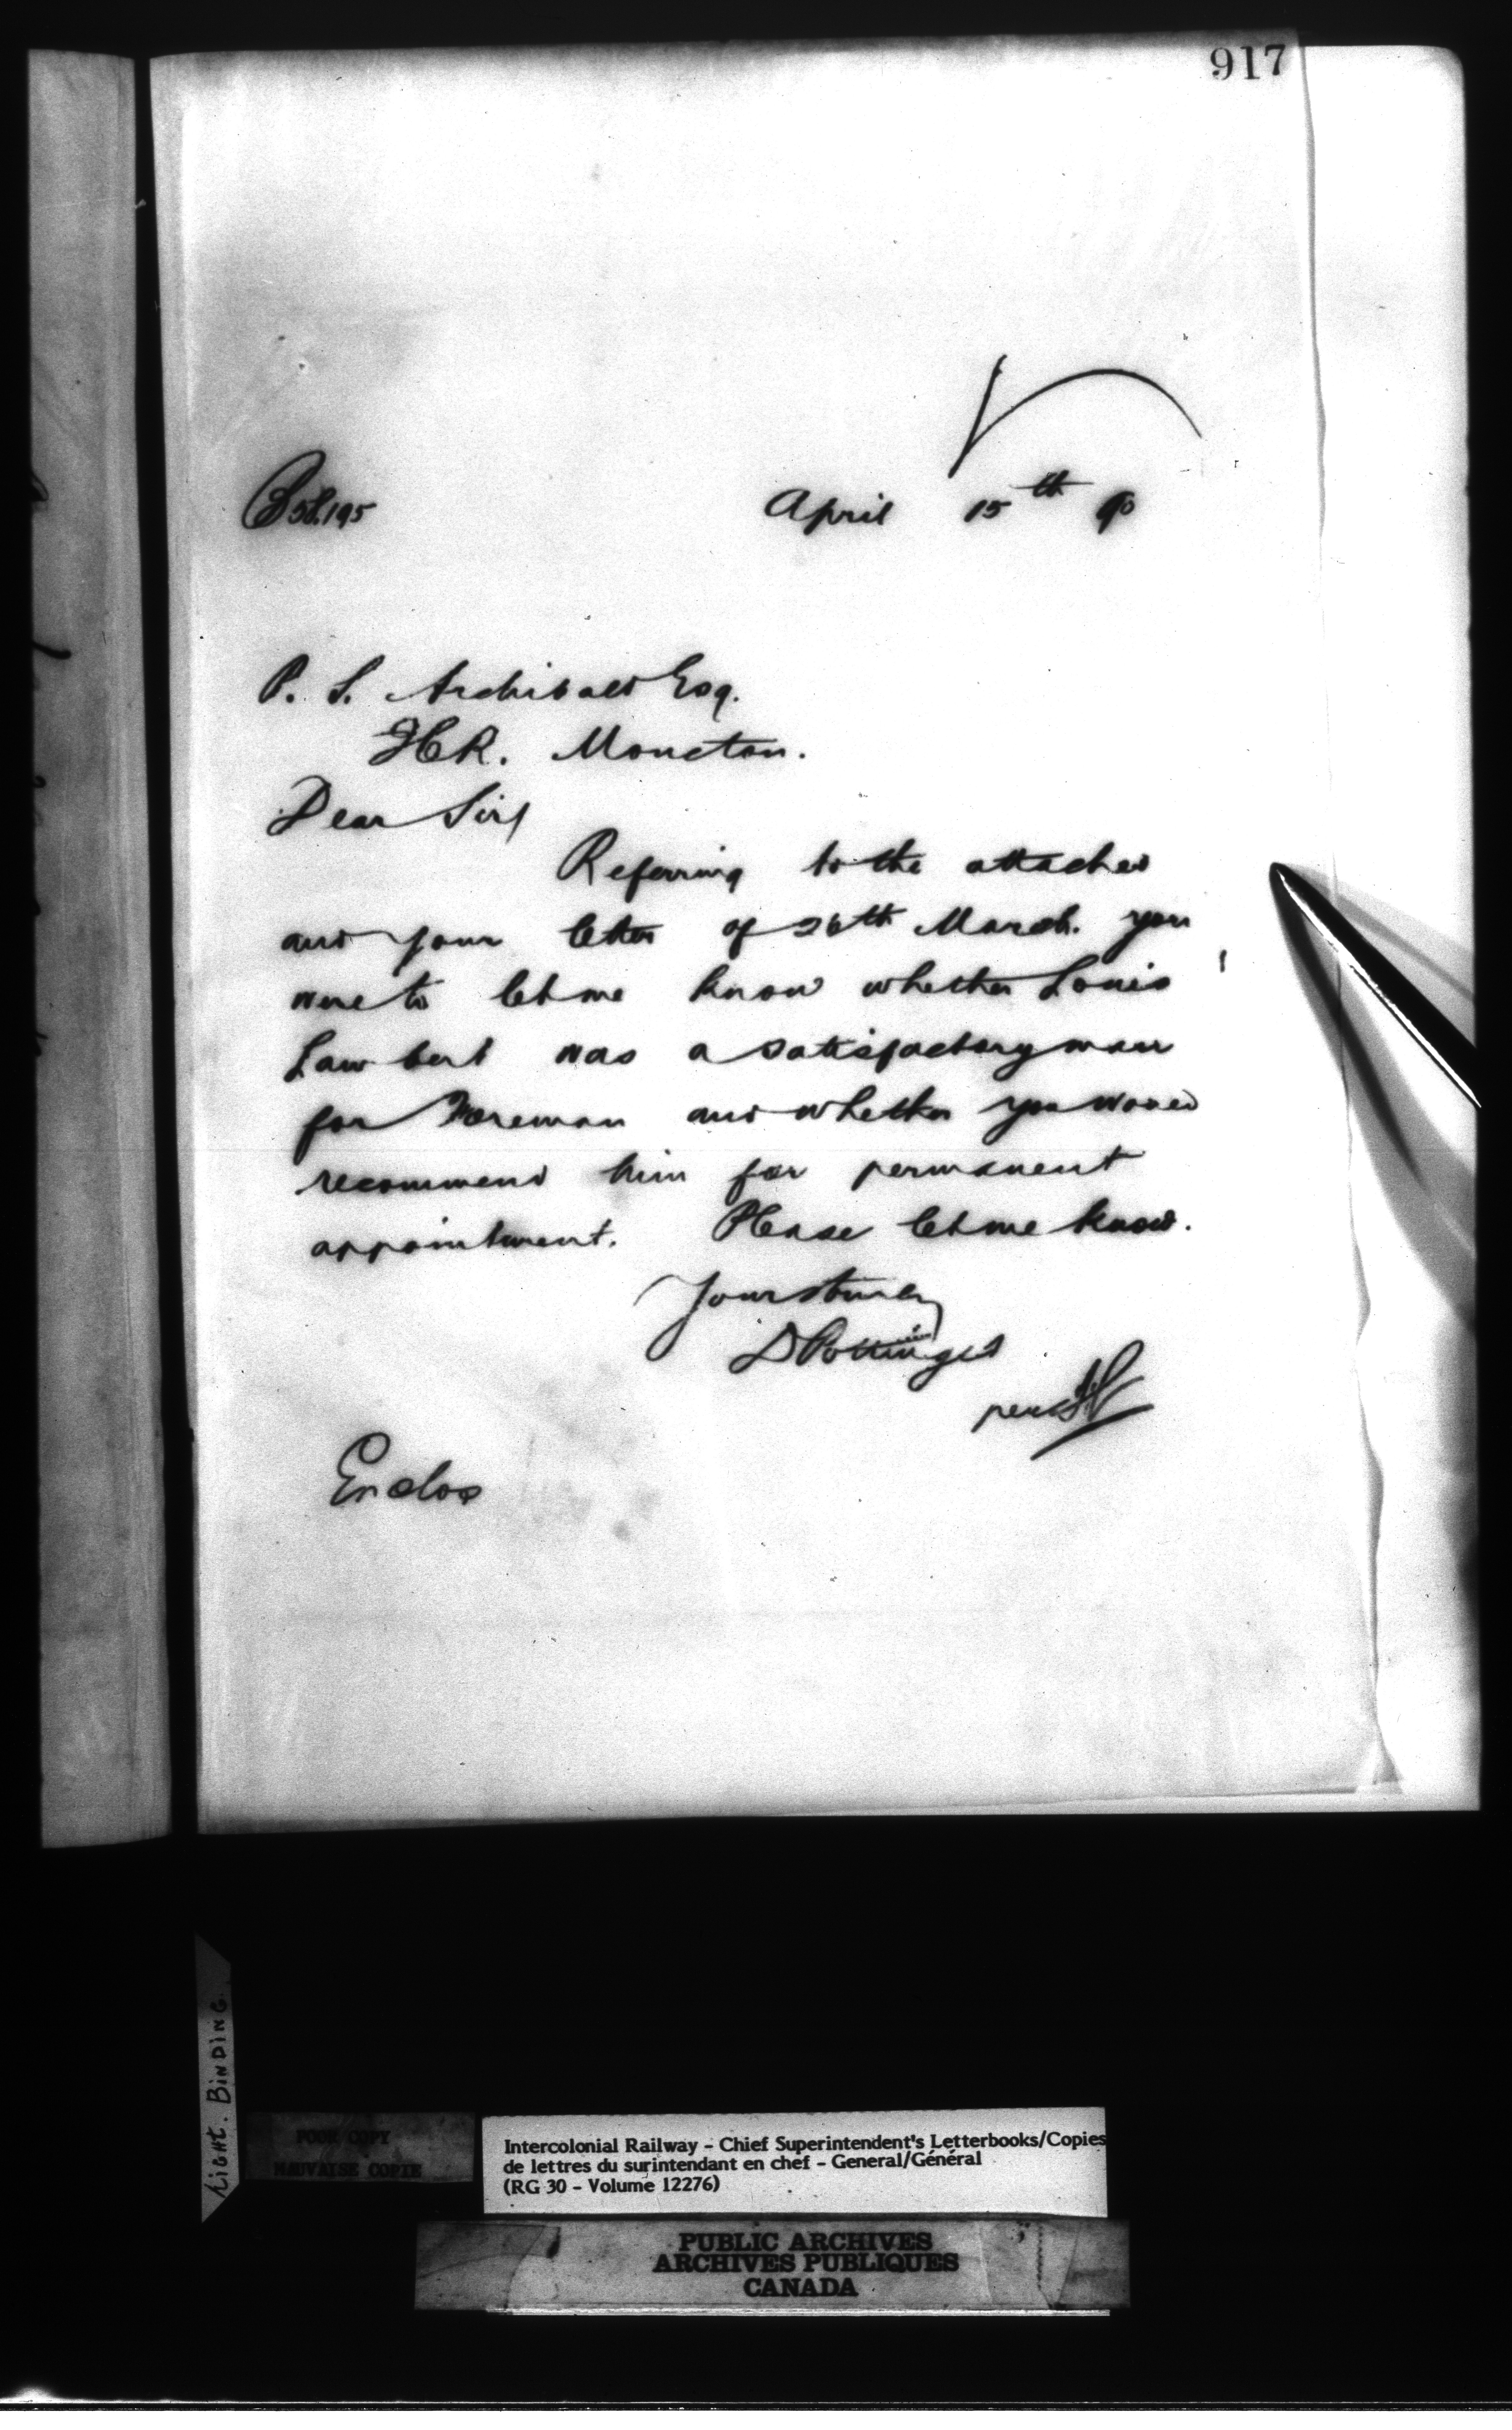 917
April 15th 90
P. S. Archibald Esq.
ICR. Moncton.
Dear Sir/
Referring to the attached
and your letter of 26th March. you
were to let me know whether Louis
Lambert was a satisfactory man
for Foreman and whether you would
recommend him for permanent
appointment. Please let me know.
Yours truly
D Pottinger
per
Enclos
Light. Binding.
POOR COPY
MAUVAISE COPIE
Intercolonial Railway – Chief Superintendent's Letterbooks/Copies
de lettres du surintendant en chef – General/Général
(RG 30 – Volume 12276)
PUBLIC ARCHIVES
ARCHIVES PUBLIQUES
CANADA